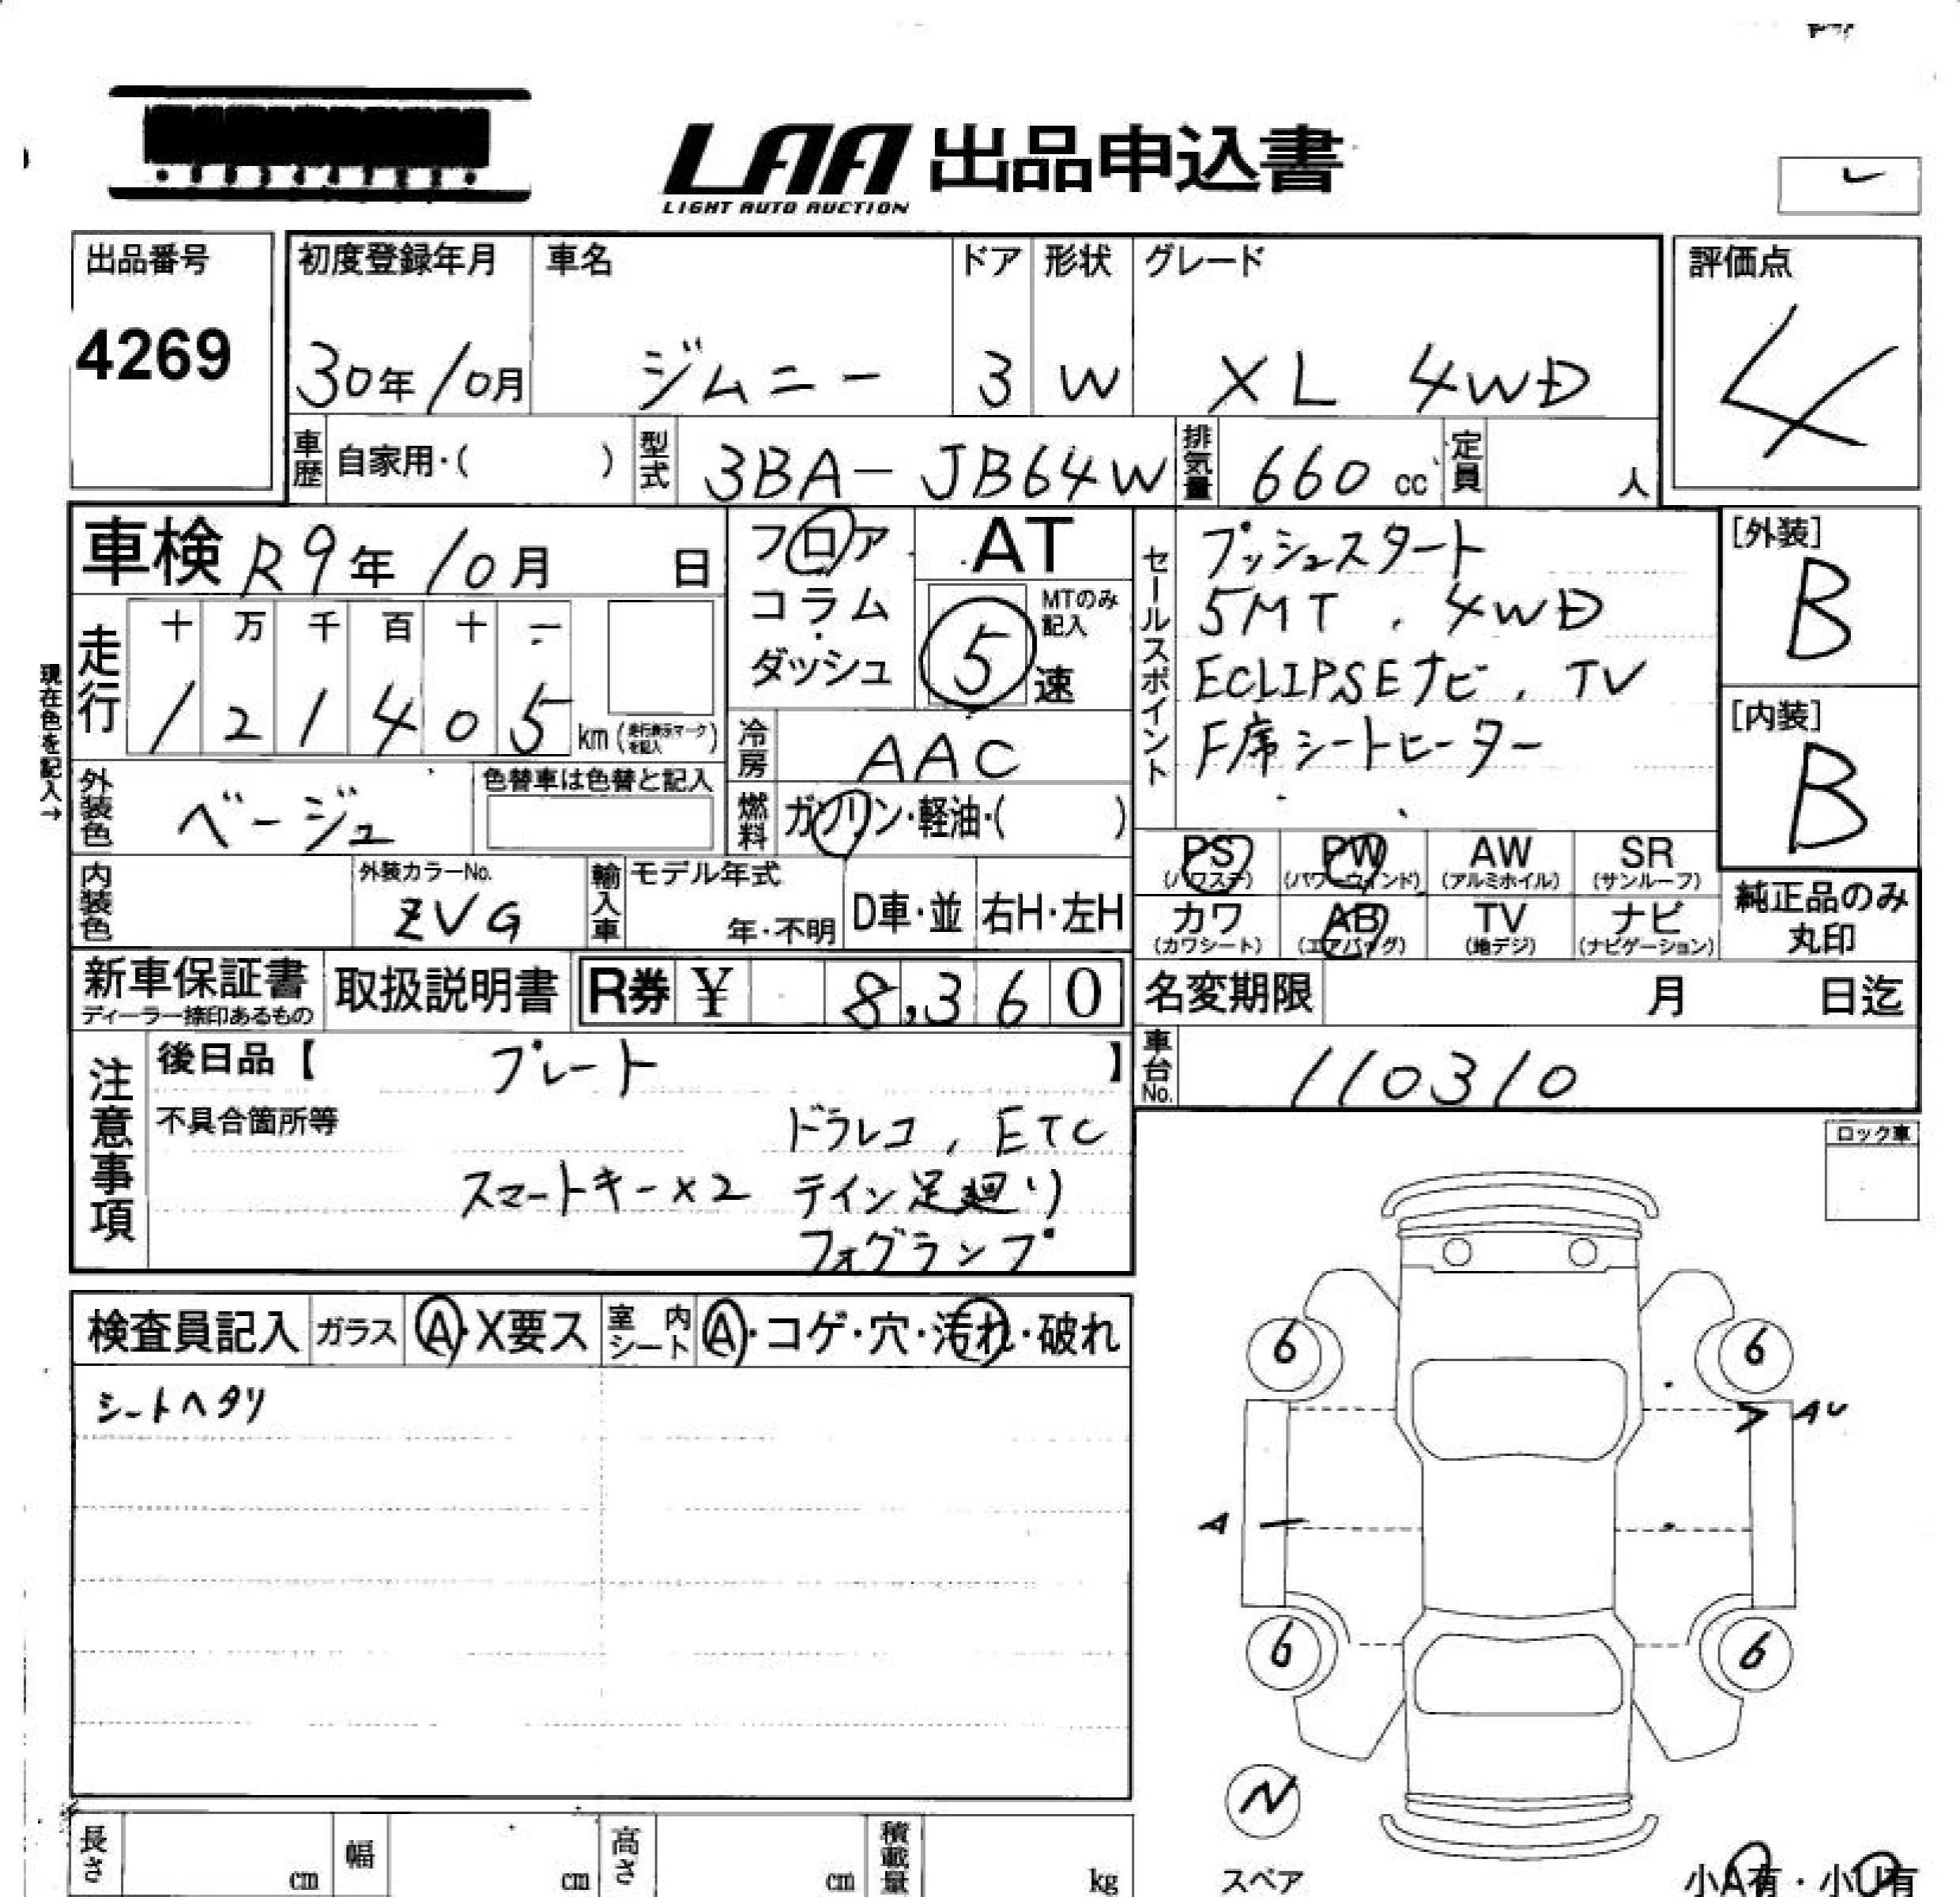 LAA 出品申込書
LIGHT AUTO AUCTION
出品番号
4269
初度登録年月
30年10月
車名
ジムニー
ドア
3
形状
W
グレード
XL 4WD
評価点
4
車歴
自家用・( )
型式
3BA-JB64W
排気量
660 cc
定員
人
車検 R9年10月 日
現在色を記入→
走行
十 万 千 百 十 一
1 2 1 4 0 5 km
フロア
コラム
・
ダッシュ
AT
MTのみ
記入
5 速
冷房
AAC
燃料
ガソリン・軽油・( )
セールスポイント
プッシュスタート
5MT , 4WD
ECLIPSEナビ , TV
F席シートヒーター
[外装]
B
[内装]
B
外装色
ベージュ
色替車は色替と記入
内装色
外装カラーNo.
ZVG
輸入車
モデル年式
年・不明
D車・並
右H・左H
PS
(パワステ)
PW
(パワーウィンド)
AW
(アルミホイル)
SR
(サンルーフ)
カワ
(カワシート)
AB
(エアバッグ)
TV
(地デジ)
ナビ
(ナビゲーション)
純正品のみ
丸印
新車保証書
ディーラー捺印あるもの
取扱説明書
R券 ¥ 8,360
名変期限 月 日迄
車台No.
110310
注意事項
後日品【 プレート 】
不具合箇所等
ドラレコ , ETC
スマートキー×2 テイン足廻り
フォグランプ
ロック車
検査員記入
ガラス
A・X要ス
室内シート
A・コゲ・穴・汚れ・破れ
シートヘタリ
6 6
AU
A
6 6
N
スペア
小A有・小U有
長さ cm
幅 cm
高さ cm
積載量 kg